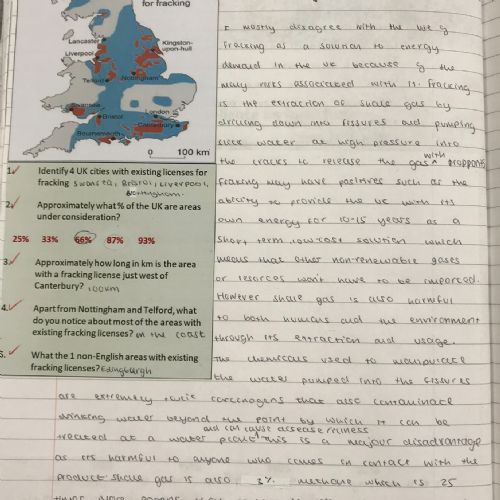 for fracking
Lancaster
Kingston-upon-hull
Liverpool
Telford
Nottingham
Swansea
London
Bristol
Canterbury
Bournemouth
0 100 km
1. Identify 4 UK cities with existing licenses for
fracking swansea, Bristol, Liverpool,
Nottingham.
2. Approximately what % of the UK are areas
under consideration?
25% 33% 66% 87% 93%
3. Approximately how long in km is the area
with a fracking license just west of
Canterbury? 100km
4. Apart from Nottingham and Telford, what
do you notice about most of the areas with
existing fracking licenses? on the coast
5. What the 1 non-English areas with existing
fracking licenses? Edingburgh
I mostly disagree with the use of
fracking as a solution to energy
demand in the UK because of the
many risks associated with it. Fracking
is the extraction of shale gas by
drilling down into fissures and pumping
water at high pressure into
the cracks to release the gas with proppants
Fracking may have positives such as the
ability to provide the UK with its
own energy for 10-15 years as a
short term, low-cost solution which
means that other non-renewable gases
or resorces won't have to be imported.
However shale gas is also harmful
to both humans and the environment
through its extraction and usage.
The chemicals used to manipulate
the water pumped into the fissures
are extremely toxic carcinogens that also contaminate
drinking water beyond the point by which it can be
treated at a water plant and can cause illness This is a majour disadvantage
as its harmful to anyone who comes in contact with the
product. shale gas is also 3% methane which is 25
times more